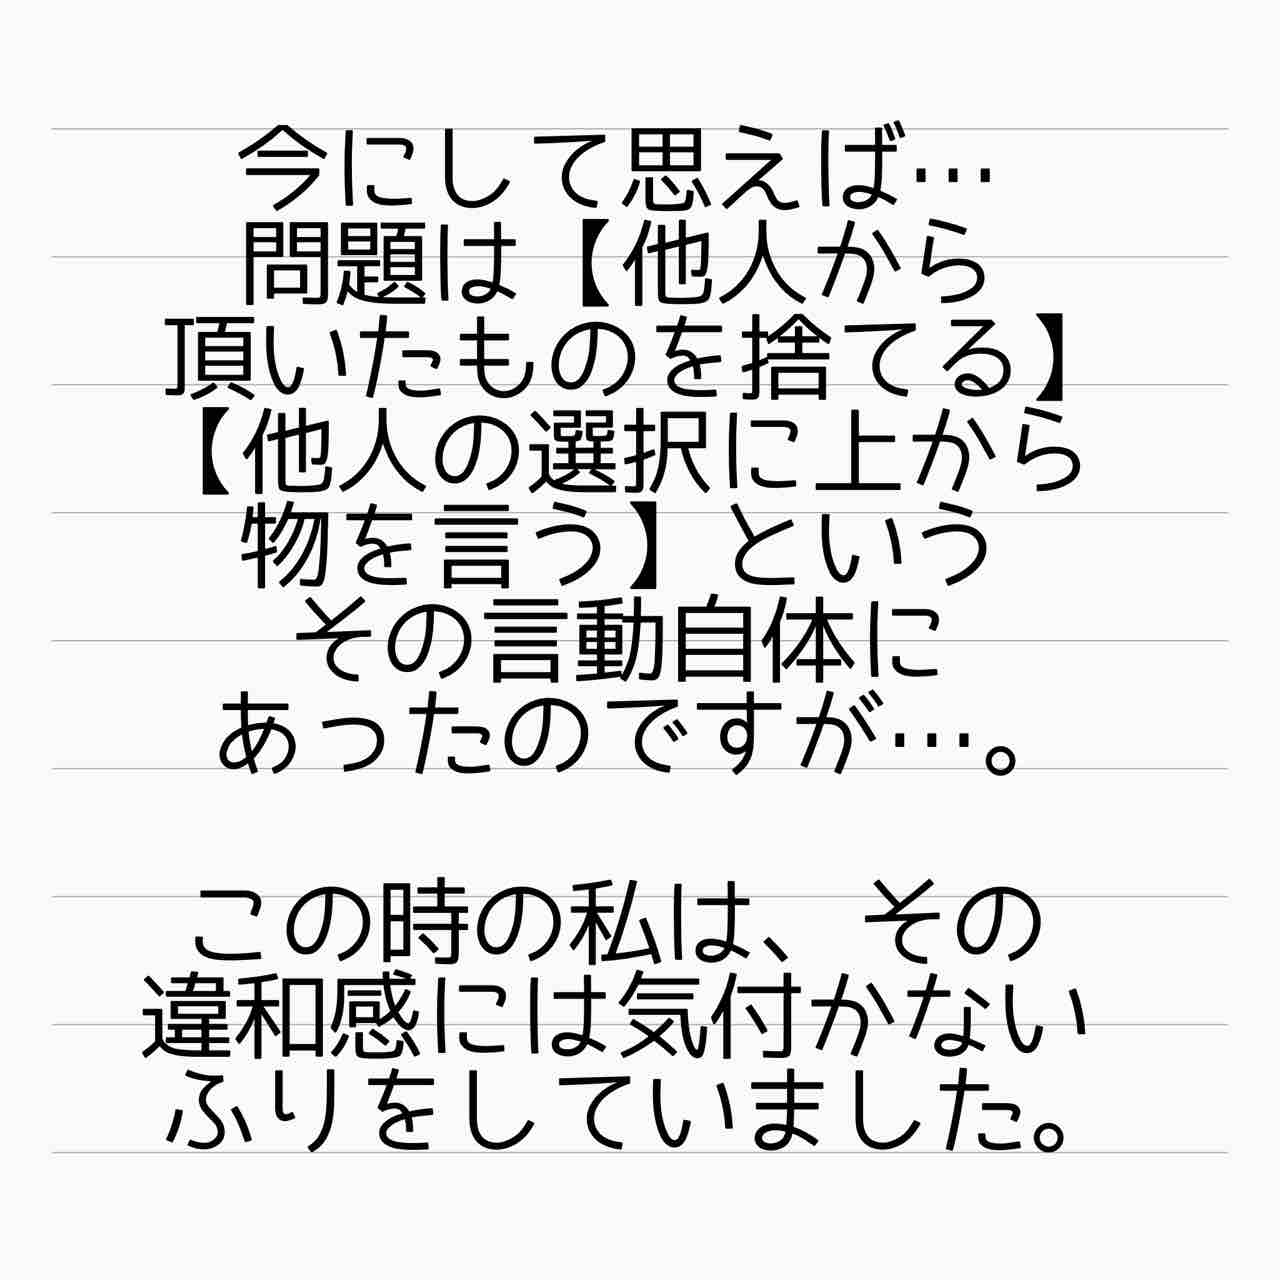 今にして思えば…
問題は【他人から
頂いたものを捨てる】
【他人の選択に上から
物を言う】という
その言動自体に
あったのですが…。
この時の私は、その
違和感には気付かない
ふりをしていました。